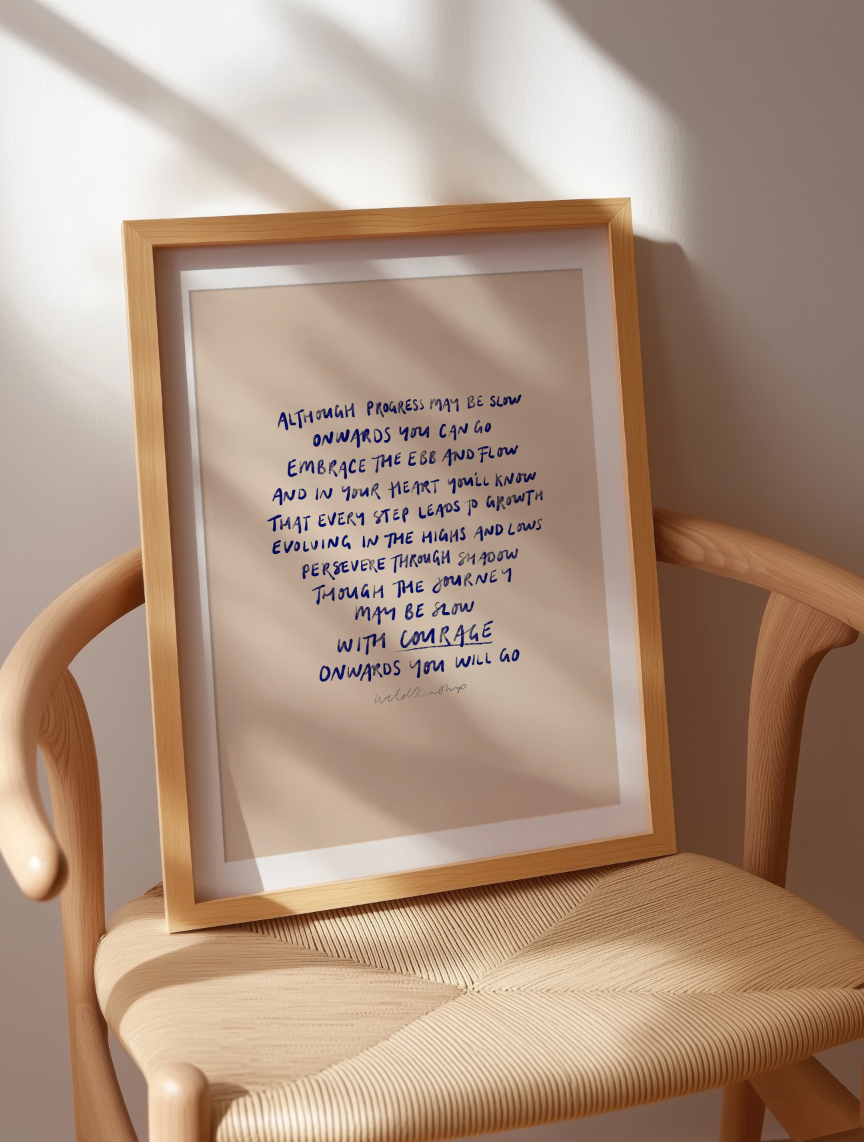 ALTHOUGH PROGRESS MAY BE SLOW
ONWARDS YOU CAN GO
EMBRACE THE EBB AND FLOW
AND IN YOUR HEART YOU'LL KNOW
THAT EVERY STEP LEADS TO GROWTH
EVOLVING IN THE HIGHS AND LOWS
PERSEVERE THROUGH SHADOW
THOUGH THE JOURNEY
MAY BE SLOW
WITH COURAGE
ONWARDS YOU WILL GO